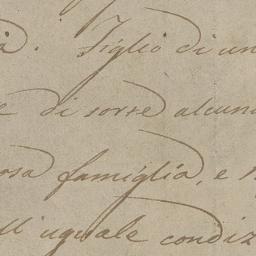 à. Figlio di un
e di sorte alcun
osa famiglia, e
ll'uguale condiz